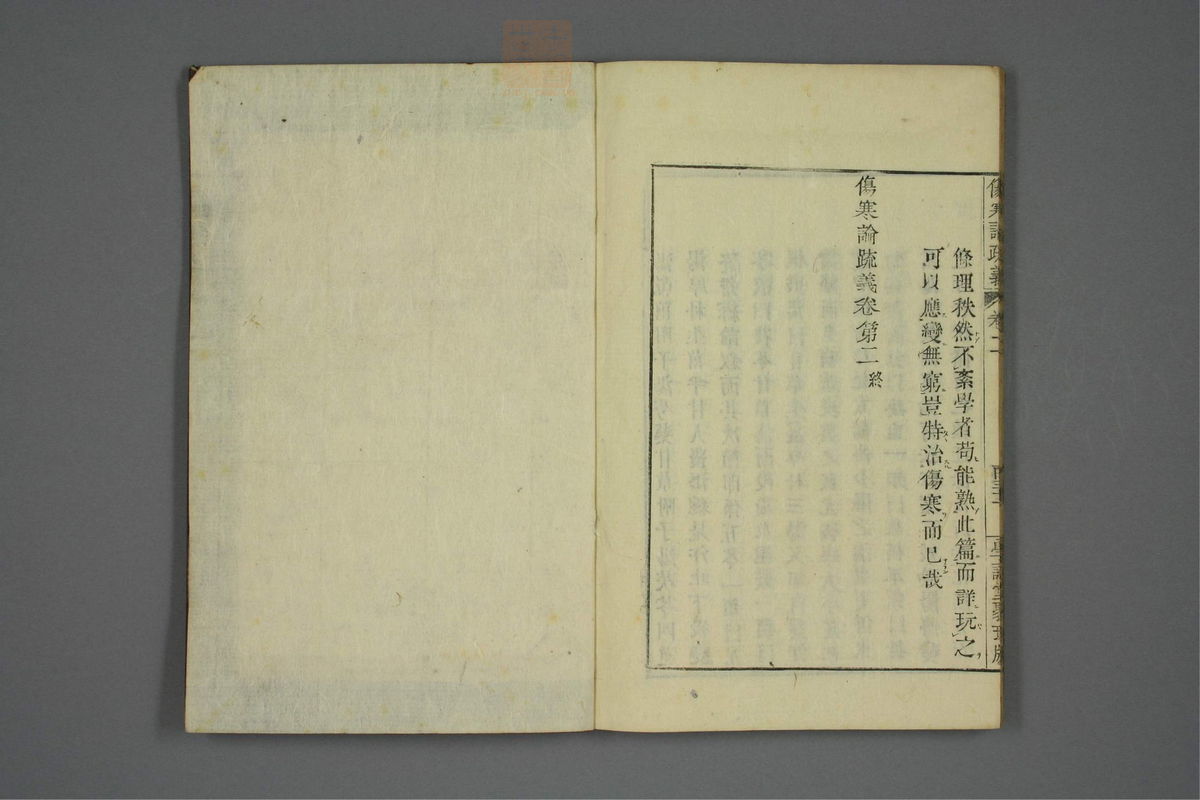 傷寒論疏義 卷二
條理秩然不紊學者苟能熟此篇而詳玩之
可以應變無窮豈特治傷寒而已哉
傷寒論疏義卷第二 終